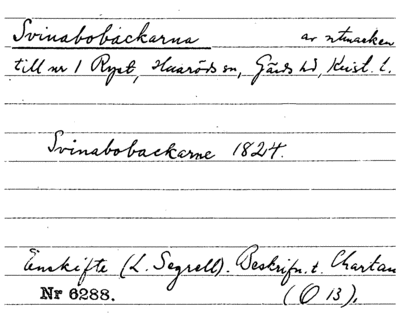 Svinabobackarna av utmarken
till nr 1 Ryet, Huaröds sn, Gärds hd, Krist. l.
Svinabobackarne 1824.
Enskifte (L. Segrell). Beskrifn. t. Chartan
Nr 6288. (O 13).